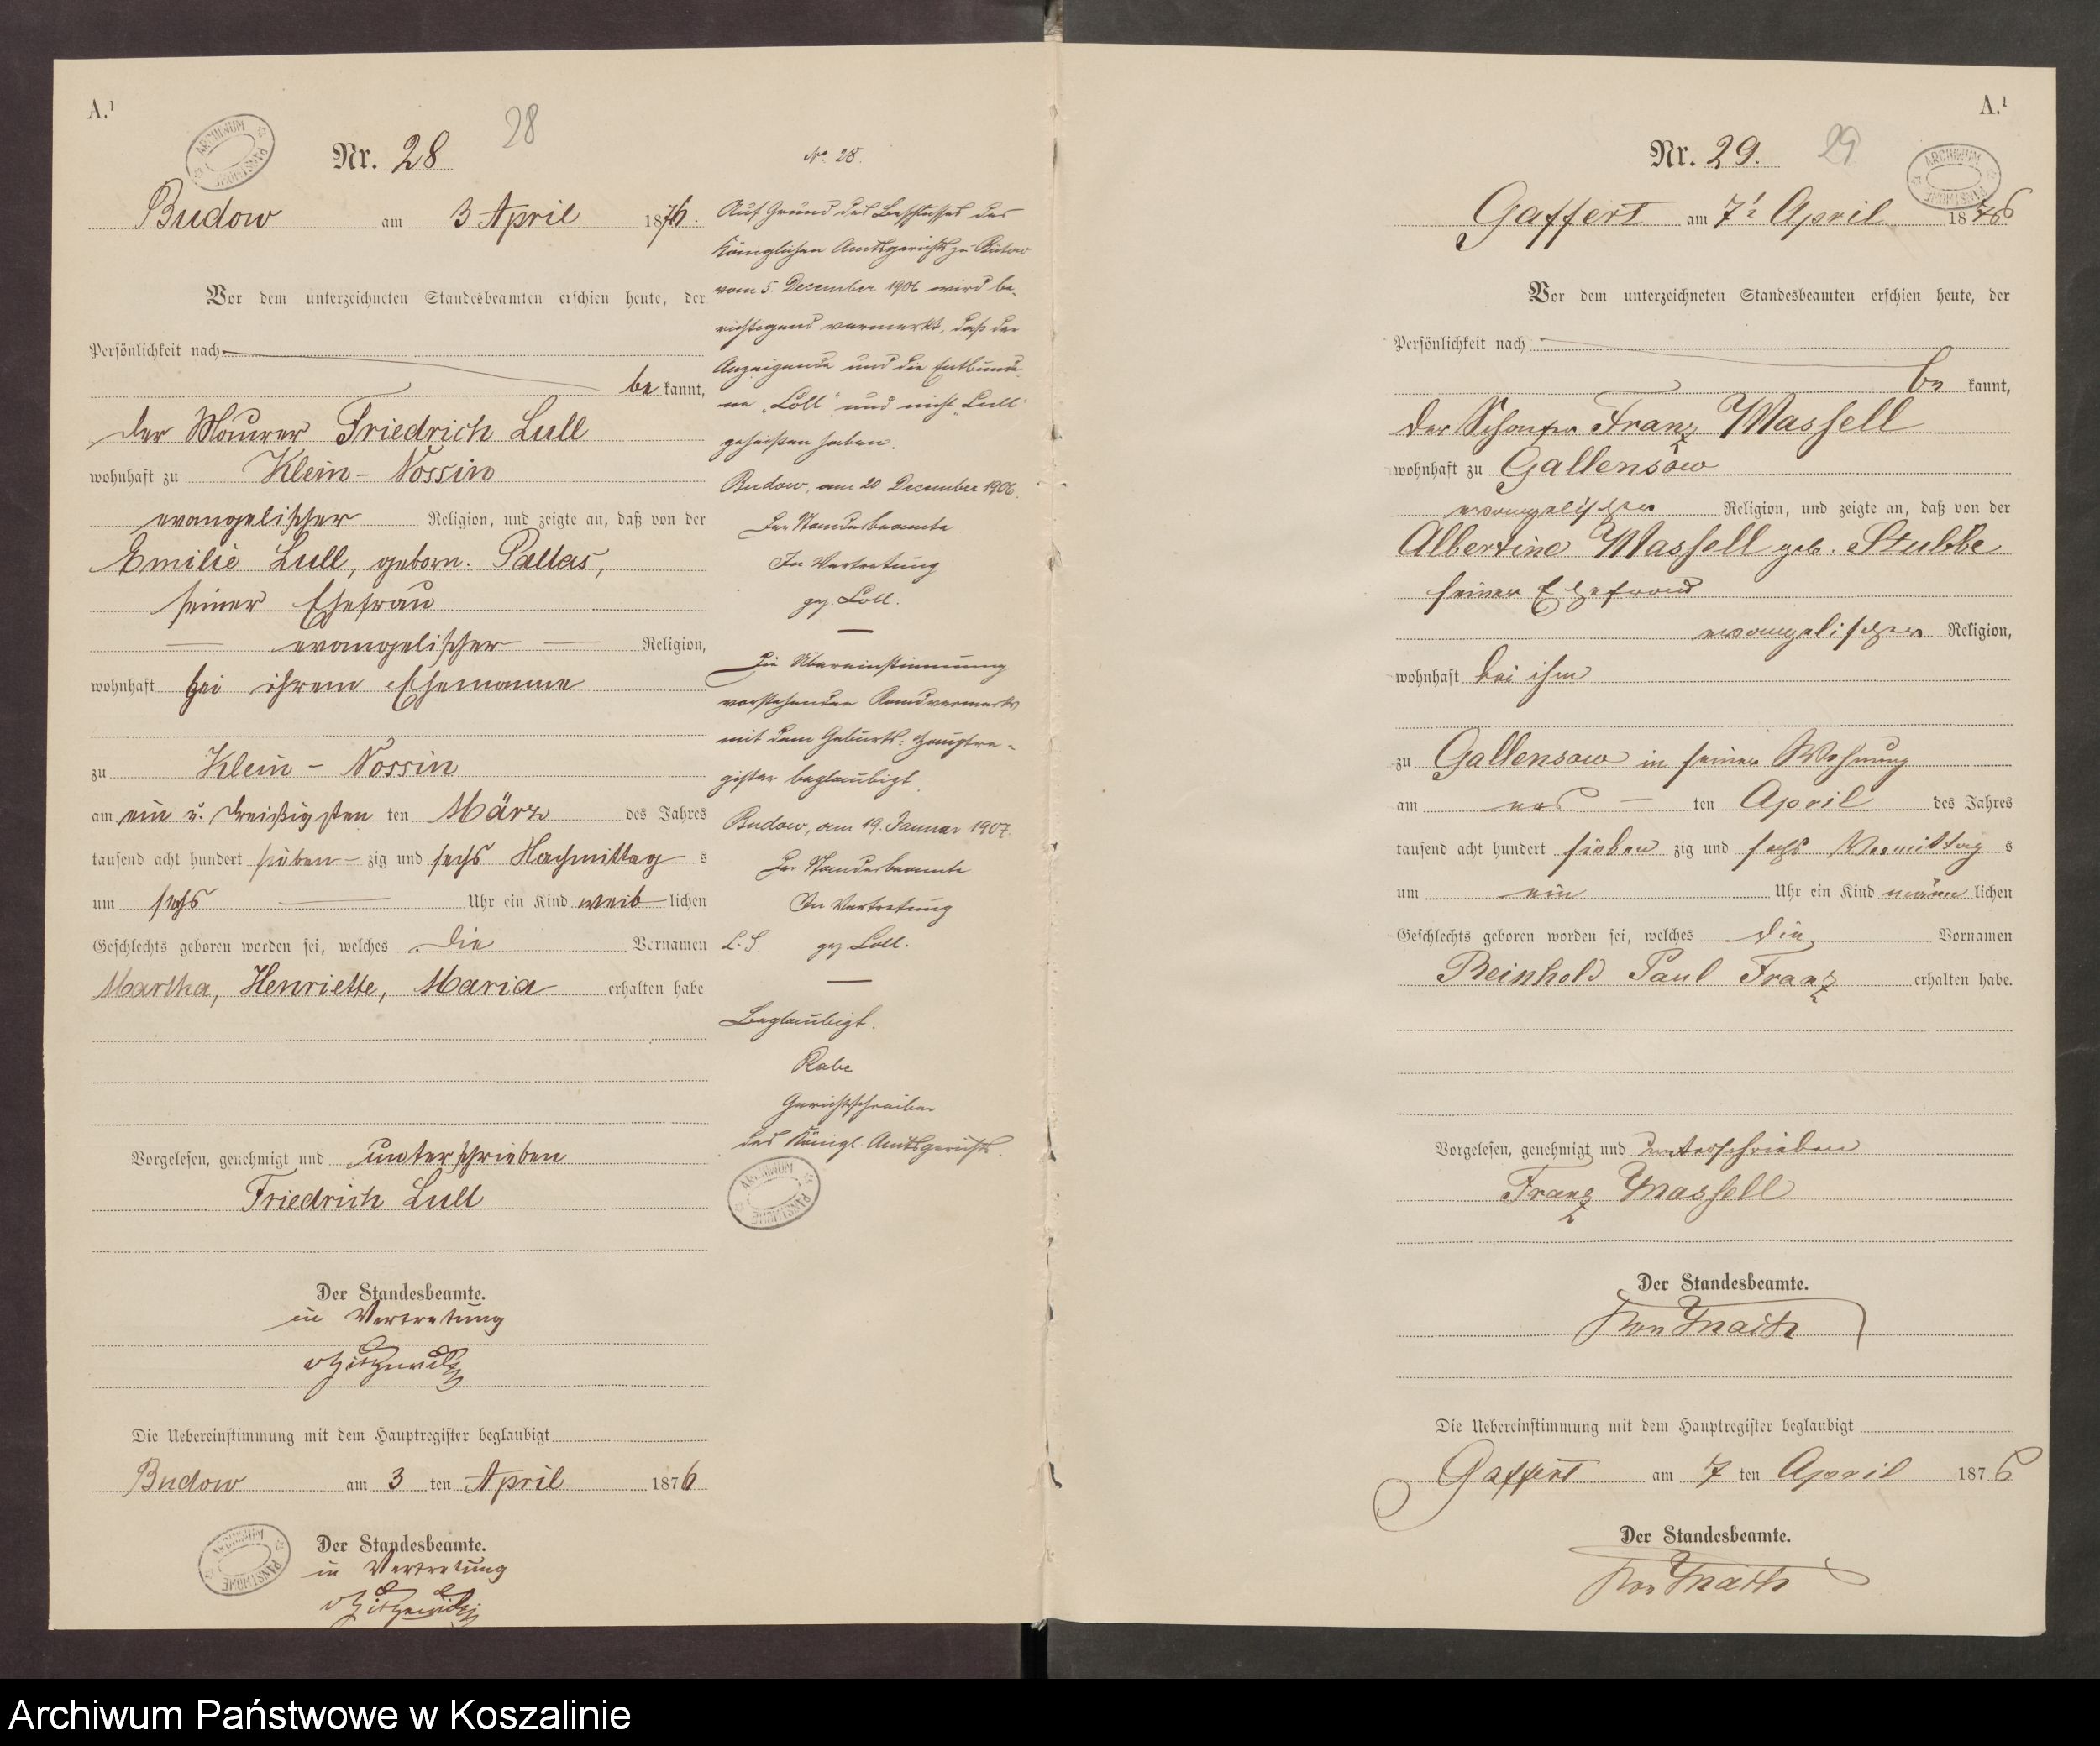 A.¹
ARCHIWUM PAŃSTWOWE
Nr. 28
28
Budow am 3 April 1876.
Vor dem unterzeichneten Standesbeamten erschien heute, der
Persönlichkeit nach
be kannt,
der Maurer Friedrich Lull
wohnhaft zu Klein-Nossin
evangelischer Religion, und zeigte an, daß von der
Emilie Lull, geborn. Pallas,
seiner Ehefrau
evangelischer Religion,
wohnhaft bei ihrem Ehemanne
zu Klein-Nossin
am ein u. dreißigsten ten März des Jahres
tausend acht hundert sieben-zig und sechs Nachmittag s
um sechs Uhr ein Kind weib-lichen
Geschlechts geboren worden sei, welches die Vornamen
Martha, Henriette, Maria erhalten habe
Vorgelesen, genehmigt und unterschrieben
Friedrich Lull
Der Standesbeamte.
in Vertretung
Die Uebereinstimmung mit dem Hauptregister beglaubigt
Budow am 3 ten April 1876
ARCHIWUM PAŃSTWOWE
Der Standesbeamte.
in Vertretung
No. 28.
Auf Grund des Beschlusses des
Königlichen Amtsgerichts zu Bütow
vom 5. December 1906 wird be-
richtigend vermerkt, daß der
Anzeigende und die Entbunde-
ne „Loll“ und nicht „Lull“
geheißen haben.
Budow, am 20. December 1906.
Der Standesbeamte
In Vertretung
gez. Loll.
Die Übereinstimmung
vorstehenden Randvermerks
mit dem Geburts-Hauptre-
gister beglaubigt.
Budow, am 19. Januar 1907.
Der Standesbeamte
In Vertretung
L. S. gez. Loll.
Beglaubigt.
Rabe
Gerichtsschreiber
des Königl. Amtsgerichts.
ARCHIWUM PAŃSTWOWE
A.¹
Nr. 29.
29
ARCHIWUM PAŃSTWOWE
Gaffert am 7t April 1876
Vor dem unterzeichneten Standesbeamten erschien heute, der
Persönlichkeit nach
be kannt,
der Franz Massell
wohnhaft zu Gallensow
evangelischer Religion, und zeigte an, daß von der
Albertine Massell geb. Stubbe
seiner Ehefrau
evangelischer Religion,
wohnhaft bei ihm
zu Gallensow in seiner Wohnung
am ten April des Jahres
tausend acht hundert sieben zig und sechs Vormittag s
um ein Uhr ein Kind männ lichen
Geschlechts geboren worden sei, welches die Vornamen
Reinhold Paul Franz erhalten habe.
Vorgelesen, genehmigt und unterschrieben
Franz Massell
Der Standesbeamte.
Die Uebereinstimmung mit dem Hauptregister beglaubigt
Gaffert am 7 ten April 1876
Der Standesbeamte.
Archiwum Państwowe w Koszalinie